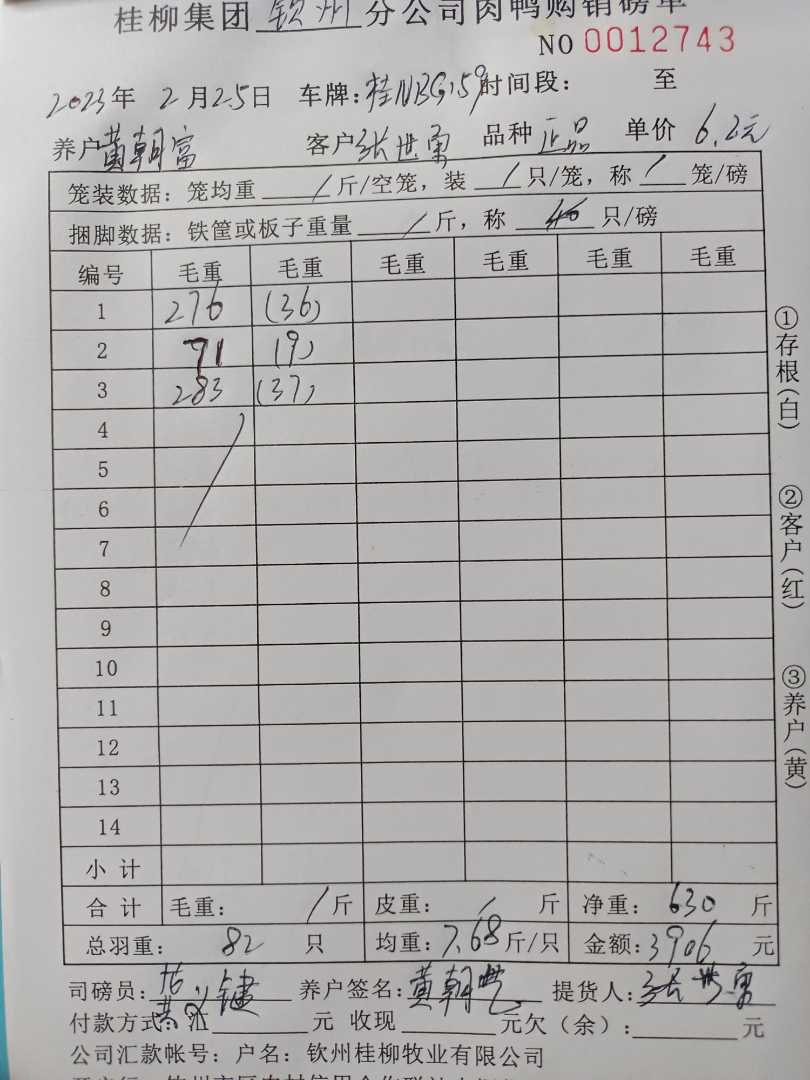 桂柳集团 钦州 分公司肉鸭购销磅单
NO 0012743
2023年 2月25日 车牌:桂NBG159 时间段: 至
养户 黄朝富 客户 张世勇 品种 正品 单价 6.2元
笼装数据: 笼均重 / 斤/空笼, 装 / 只/笼, 称 / 笼/磅
捆脚数据: 铁筐或板子重量 / 斤, 称 只/磅
编号 毛重 毛重 毛重 毛重 毛重 毛重
1 276 (36)
2 71 (9)
3 283 (37)
4
5
6
7
8
9
10
11
12
13
14
小 计
合 计 毛重: / 斤 皮重: / 斤 净重: 630 斤
总羽重: 82 只 均重: 7.68 斤/只 金额: 3906 元
司磅员: 养户签名: 黄朝 提货人: 张世勇
付款方式: 汇 元 收现 元欠(余): 元
公司汇款帐号: 户名: 钦州桂柳牧业有限公司
①存根(白)
②客户(红)
③养户(黄)